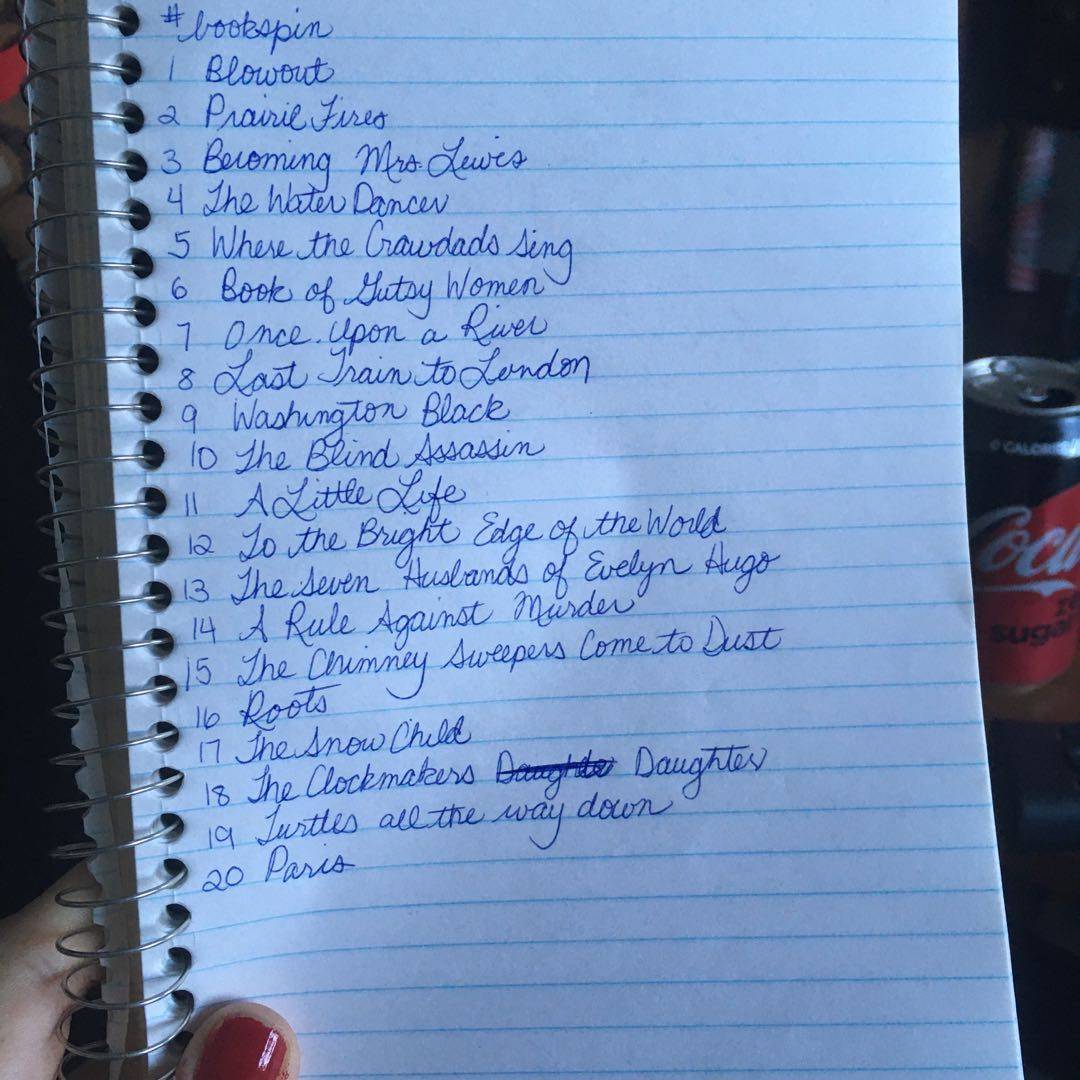 #bookspin
1 Blowout
2 Prairie Fires
3 Becoming Mrs. Lewis
4 The Water Dancer
5 Where the Crawdads Sing
6 Book of Gutsy Women
7 Once Upon a River
8 Last Train to London
9 Washington Black
10 The Blind Assassin
11 A Little Life
12 To the Bright Edge of the World
13 The Seven Husbands of Evelyn Hugo
14 A Rule Against Murder
15 The Chimney Sweepers Come to Dust
16 Roots
17 The Snow Child
18 The Clockmakers Daughter
19 Turtles all the way down
20 Paris
0 CALORIES
Coca
sugar